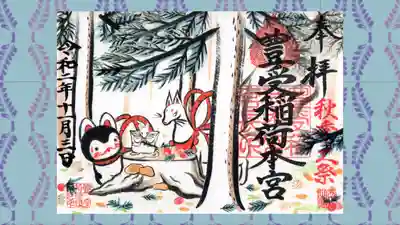 奉拝
秋季大祭
豊受稲荷本宮
令和二年十一月三日